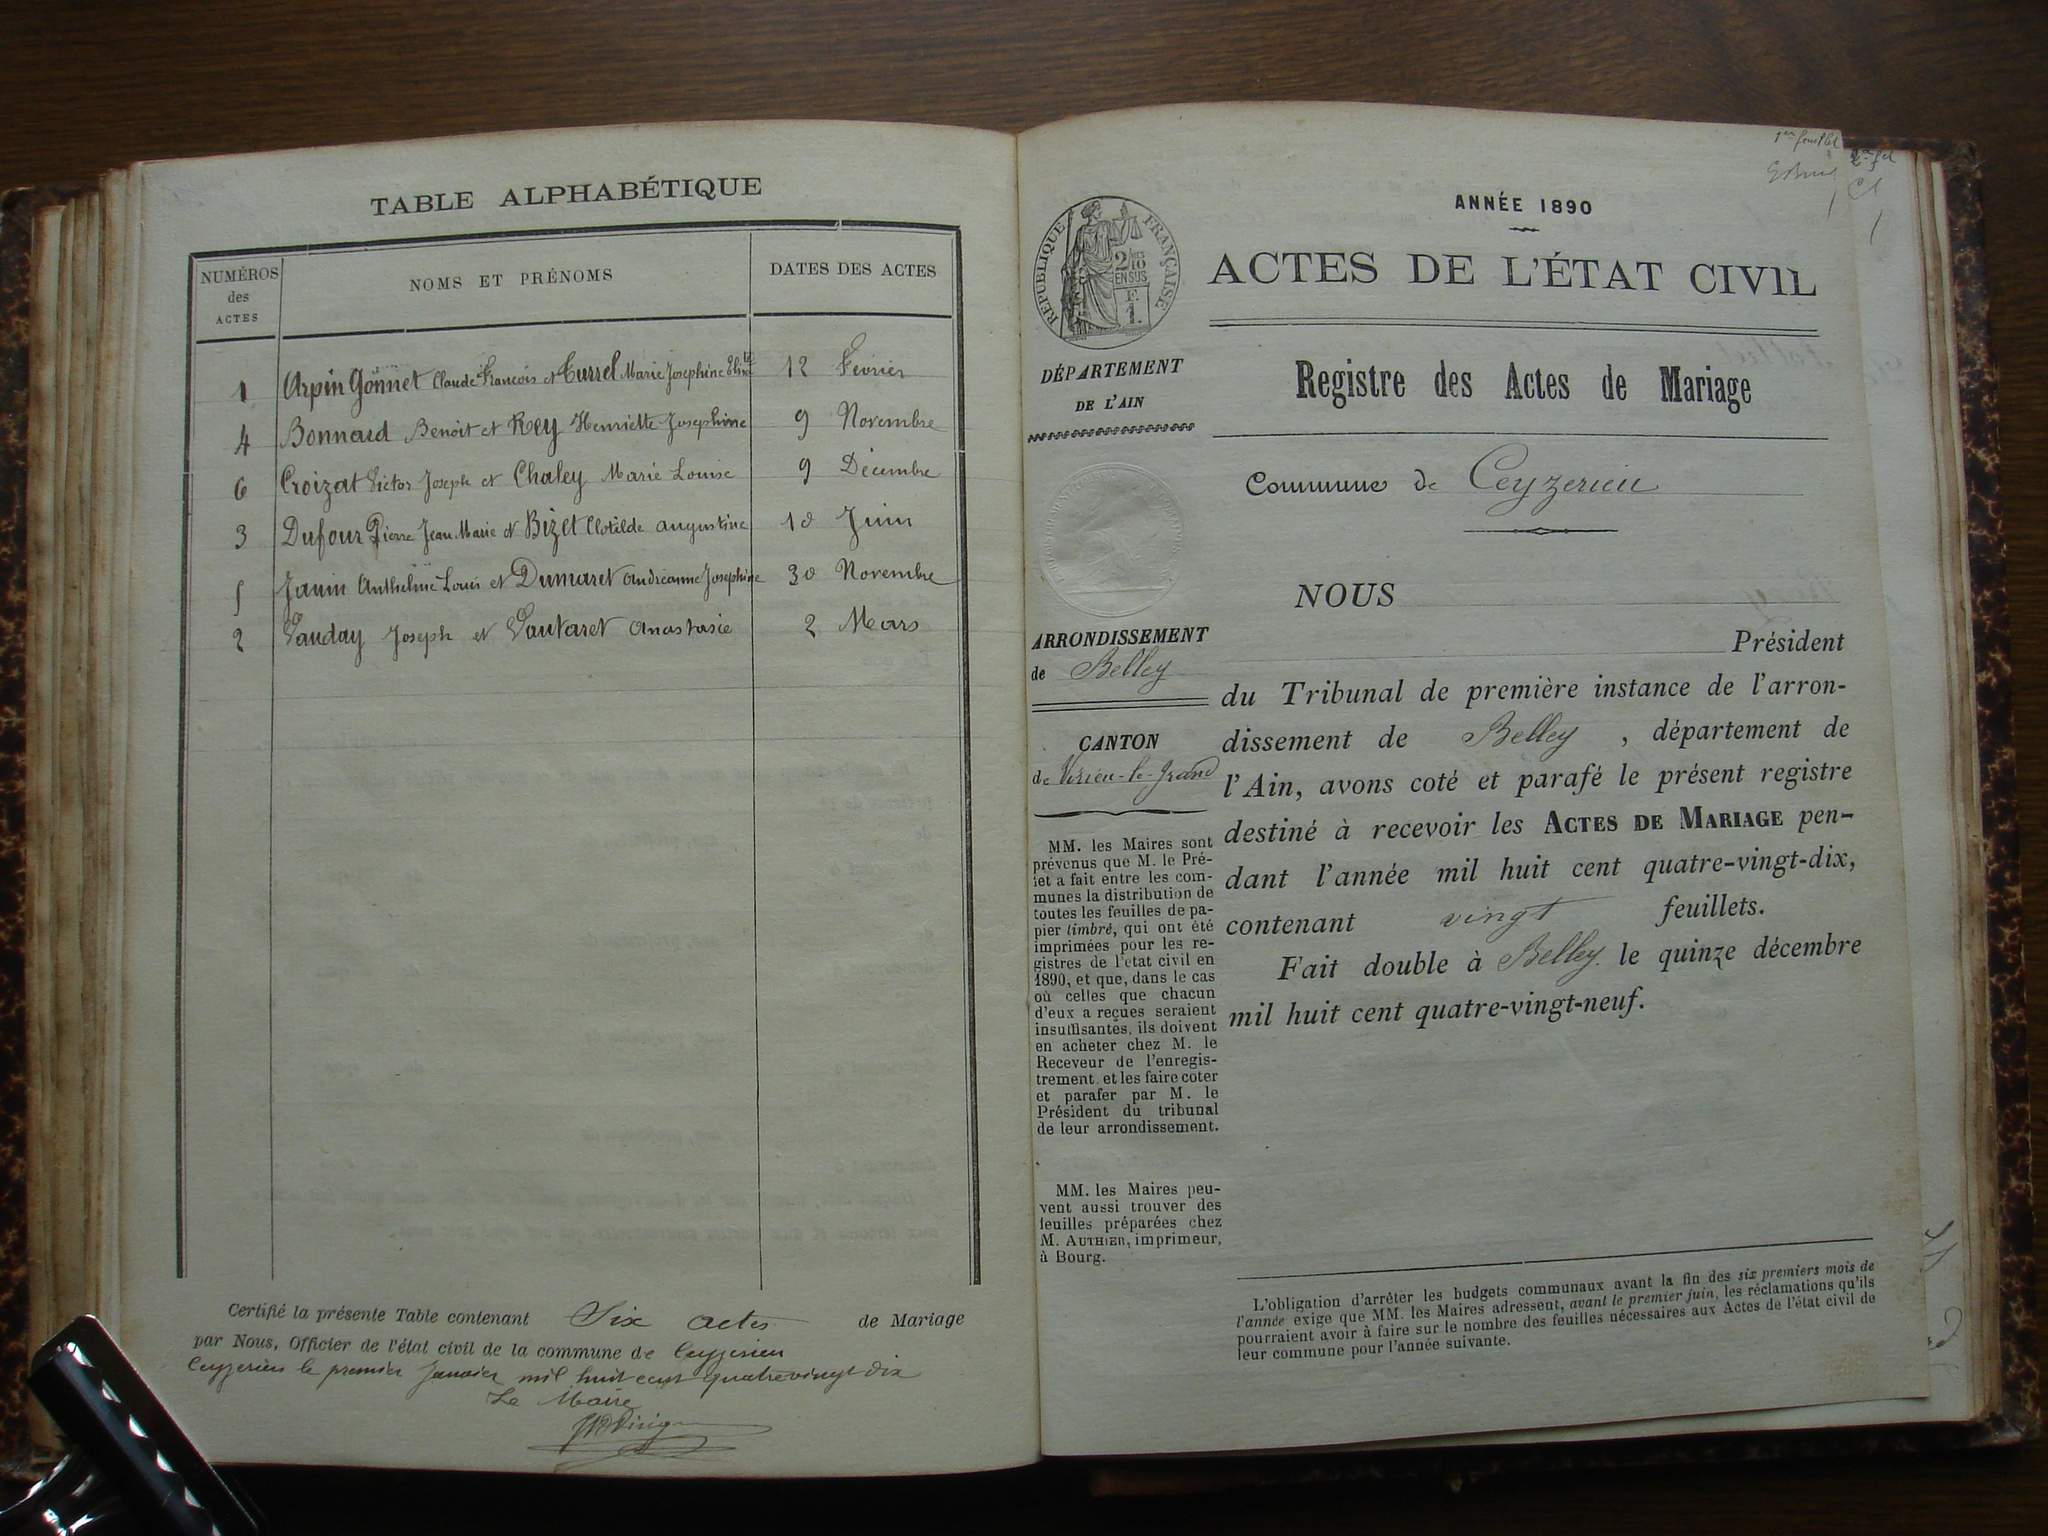 TABLE ALPHABÉTIQUE
NUMÉROS des ACTES
NOMS ET PRÉNOMS
DATES DES ACTES
1 Arpin Gonnet Claude François et Turrel Marie Josephine 12 Février
4 Bonnard Benoit et Rey Henriette Josephine 9 Novembre
6 Croizat Victor Joseph et Chaley Marie Louise 9 Décembre
3 Dufour Pierre Jean Marie et Bizet Clotilde augustine 10 Juin
5 Janin Anthelme Louis et Dumaret andréanne Josephine 30 Novembre
2 Vauday Joseph et Vautaret anastasie 2 Mars
Certifié la présente Table contenant Six actes de Mariage
par Nous, Officier de l'état civil de la commune de Ceyzerieu
Ceyzerieu le premier Janvier mil huit cent quatrevingt dix
Le Maire
1er feuillet
ANNÉE 1890
ACTES DE L'ÉTAT CIVIL
RÉPUBLIQUE FRANÇAISE
2/10 EN SUS
F. 1.
DÉPARTEMENT
DE L'AIN
Registre des Actes de Mariage
Commune de Ceyzerieu
NOUS
Président
ARRONDISSEMENT
de Belley
CANTON
de Virieu-le-grand
du Tribunal de première instance de l'arron-
dissement de Belley, département de
l'Ain, avons coté et parafé le présent registre
destiné à recevoir les ACTES DE MARIAGE pen-
dant l'année mil huit cent quatre-vingt-dix,
contenant vingt feuillets.
Fait double à Belley le quinze décembre
mil huit cent quatre-vingt-neuf.
MM. les Maires sont
prévenus que M. le Pré-
fet a fait entre les com-
munes la distribution de
toutes les feuilles de pa-
pier timbré, qui ont été
imprimées pour les re-
gistres de l'état civil en
1890, et que, dans le cas
où celles que chacun
d'eux a reçues seraient
insuffisantes, ils doivent
en acheter chez M. le
Receveur de l'enregis-
trement et les faire coter
et parafer par M. le
Président du tribunal
de leur arrondissement.
MM. les Maires peu-
vent aussi trouver des
feuilles préparées chez
M. AUTHIER, imprimeur,
à Bourg.
L'obligation d'arrêter les budgets communaux avant la fin des six premiers mois de
l'année exige que MM. les Maires adressent, avant le premier juin, les réclamations qu'ils
pourraient avoir à faire sur le nombre des feuilles nécessaires aux Actes de l'état civil de
leur commune pour l'année suivante.